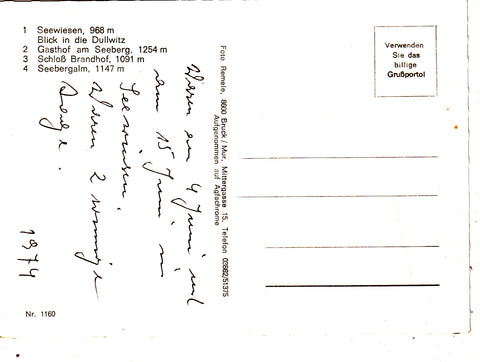 1 Seewiesen, 968 m
Blick in die Dullwitz
2 Gasthof am Seeberg, 1254 m
3 Schloß Brandhof, 1091 m
4 Seebergalm, 1147 m
Verwenden
Sie das
billige
Grußportol
Foto Remele, 8600 Bruck / Mur, Mittergasse 15, Telefon 03862/51375
Aufgenommen auf Agfachrome
Waren am 4 Juni und
am 15 Juni in
Seewiesen.
Waren 2
Tage.
1974
Nr. 1160